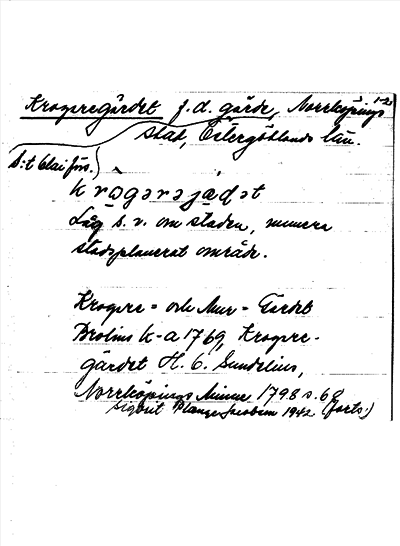 Krogaregärdet f.d. gärde, Norrköpings 1-2
stad, Östergötlands län.
S:t Olai förs.
krògərəjædət
Låg s.v. om staden, numera
stadsplanerat område.
Krogare- och Mur- Gärdet
Brolins k-a 1769, Krogare-
gärdet H. C. Sundelius,
Norrköpings Minne 1798 s. 68
Sigbrit Plænge Jacobson 1942 (forts.)